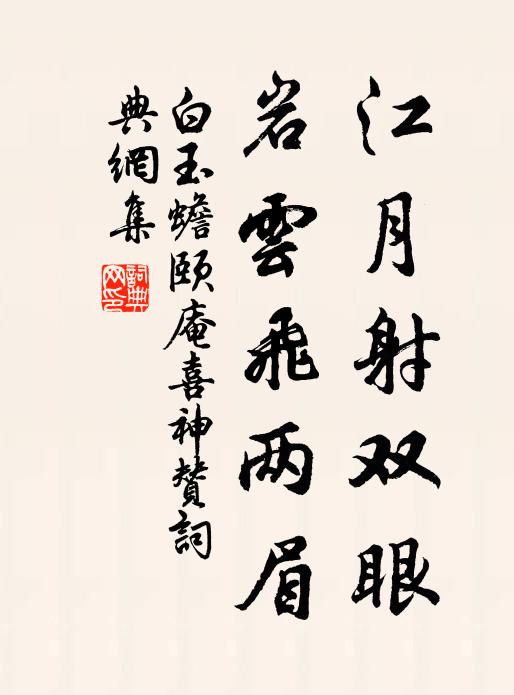 江月射双眼
岩雲飛两眉
白玉蟾頤庵喜神贊詞
典網集
詞典网印